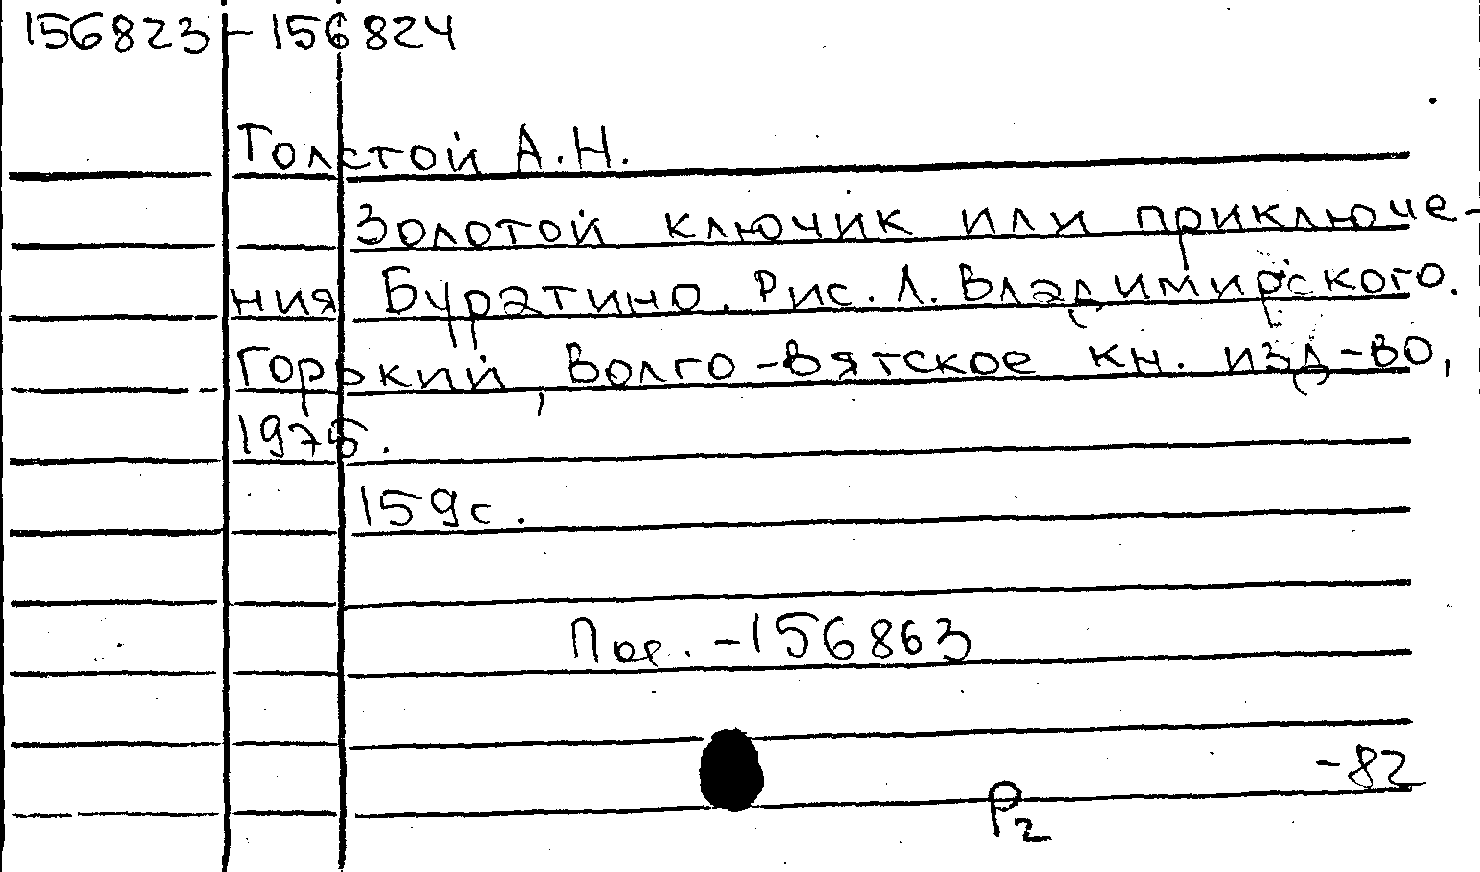 156823 - 156824
Толстой А.Н.
Золотой ключик или приключе-
ния Буратино. Рис. Л. Владимирского.
Горький, Волго-Вятское кн. изд-во,
1975.
159с.
-156863
-82
Р2